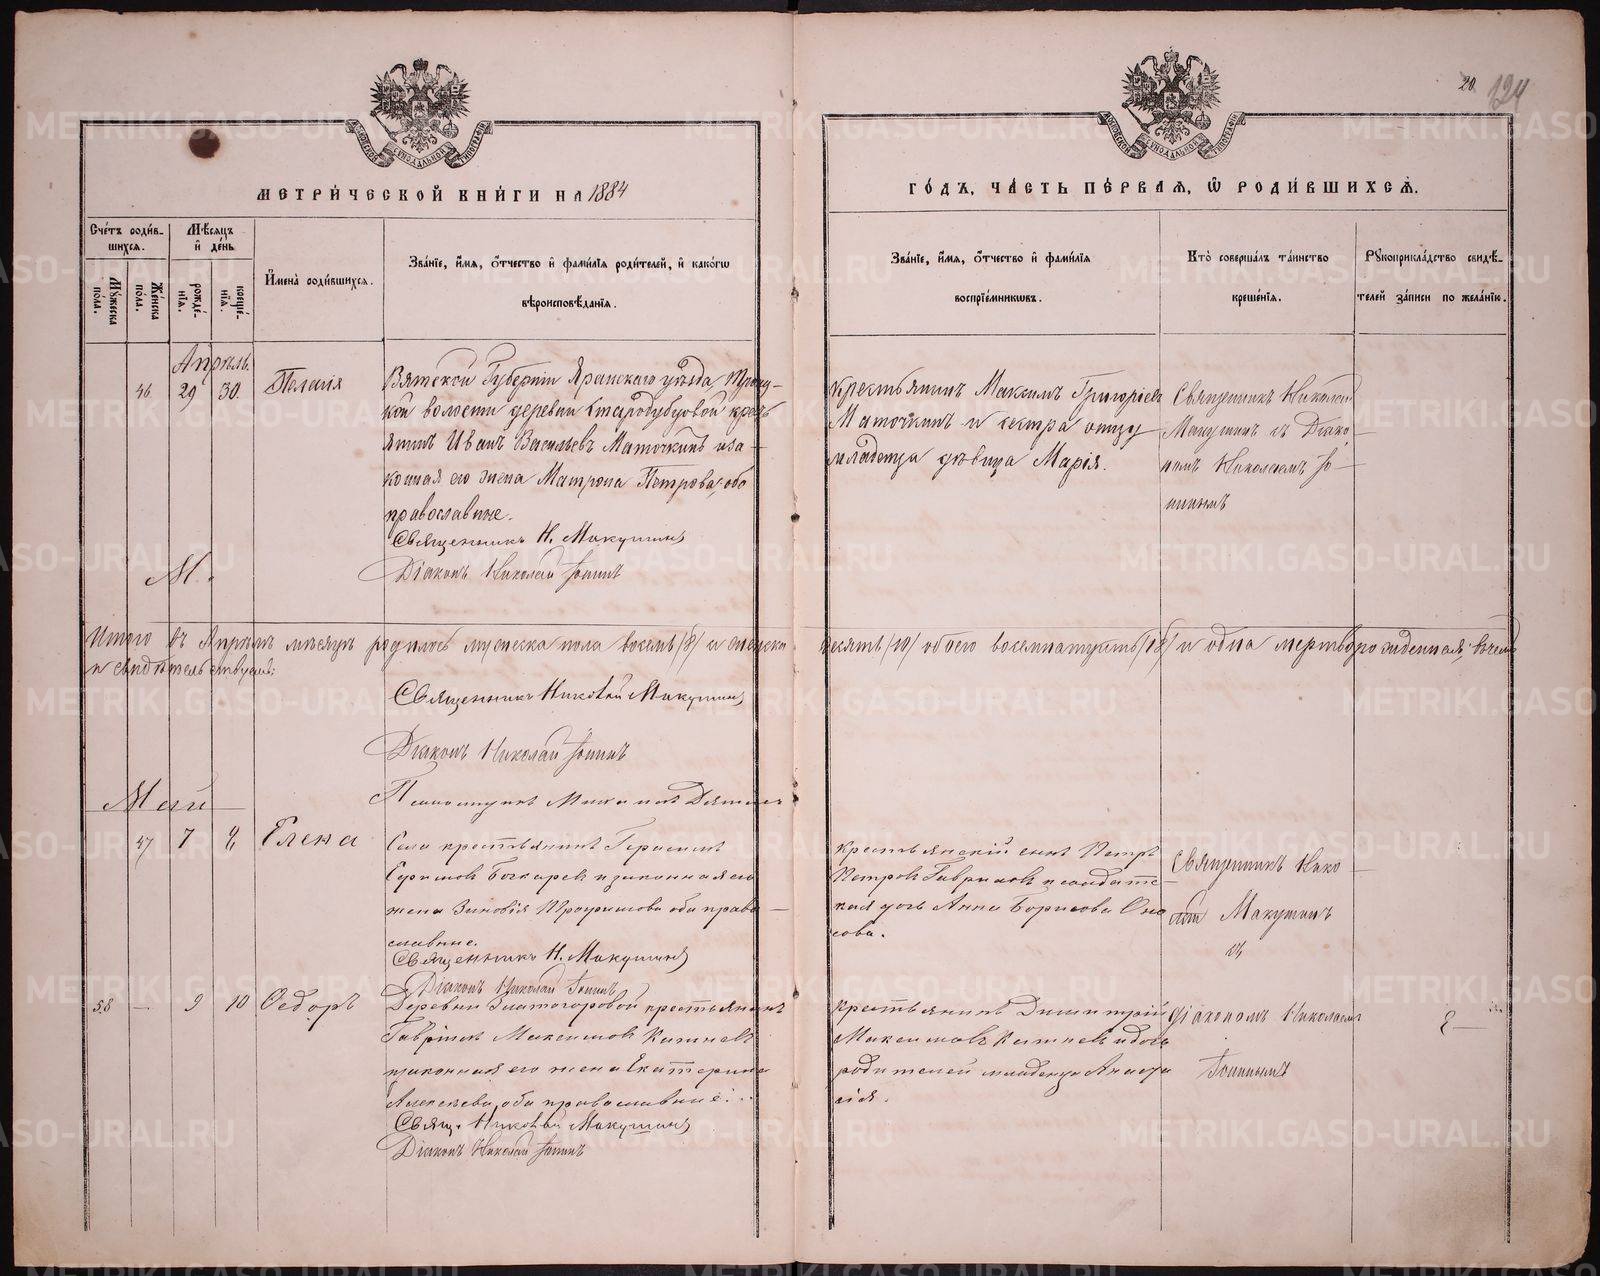 20 124
МОСКОВСКОЙ СѴНОДАЛЬНОЙ ТИПОГРАФІИ
МОСКОВСКОЙ СѴНОДАЛЬНОЙ ТИПОГРАФІИ
МЕТРИ́ЧЕСКОЙ КНИ́ГИ НА 1884
ГО́ДЪ, ЧА́СТЬ ПЕ́РВАЯ, Ѡ РОДИ́ВШИХСѦ.
Сче́тъ роди́в-
шихся.
Мѣ́сяцъ
и҆ де́нь
Мꙋ́жеска
по́ла.
Же́нска
по́ла.
рожде́-
нїѧ.
креще́-
нїѧ.
И҆мена̀ роди́вшихся.
Зва́нїе, и҆́мя, ѻ҆́тчество и҆ фами́лїя роди́телей, и҆ како́гѡ
вѣроисповѣ́данїя.
Зва́нїе, и҆́мя, ѻ҆́тчество и҆ фами́лїя
воспрїе́мникѡвъ.
Кто̀ соверша́лъ та́инство
креще́нїя.
Рꙋкоприкла́дство свидѣ́-
телей за́писи по жела́нїю.
Апрѣль.
46. 29 30. Пелагія
Вятской Губерніи Яранскаго уѣзда, Троиц-
кой волости деревни Стародубуовой кресть
янинъ Иванъ Васильевъ Маточкинъ и за-
конная его жена Матрона Петрова, оба
православные.
Священникъ Н. Макушинъ
Діаконъ Николай Іонинъ
Крестьянинъ Максимъ Григорьевъ
Маточкинъ и сестра отцу
младенца дѣвица Марія.
Священникъ Николай
Макушинъ съ Діако-
номъ Николаемъ Іо-
нинымъ
М.
Итого въ Апрѣлѣ мѣсяцѣ родилось мужеска пола восемь /8/ и женска десять /10/ обоего восемнатцать /18/ и одна мертворожденная, въ чемъ
и свидѣтельствуемъ:
Священникъ Николай Макушинъ
Діаконъ Николай Іонинъ
Псаломщикъ
Май
47 7 9 Елена
Села крестьянинъ Герасимъ
Ефимовъ Бочкаревъ и законная его
жена Зиновія Трофимова оба право-
славные.
Священникъ Н. Макушинъ
Діаконъ Николай Іонинъ
Крестьянскій сынъ Петръ
Петровъ Гавриловъ и солдатс-
кая дочь Анна Борисова
сова.
Священникъ Нико-
лай Макушинъ
съ
58 — 9 10 Ѳедоръ
Деревни Златогоровой крестьянинъ
Гавріилъ Максимовъ
и законная его жена Екатерина
Алексѣева, оба православные.
Свящ. Николай Макушинъ
Діаконъ Николай Іонинъ
Крестьянинъ Димитрій
Максимовъ и дочь
родителей младенца Анаста
сія.
Діакономъ Николаемъ
Іонинымъ